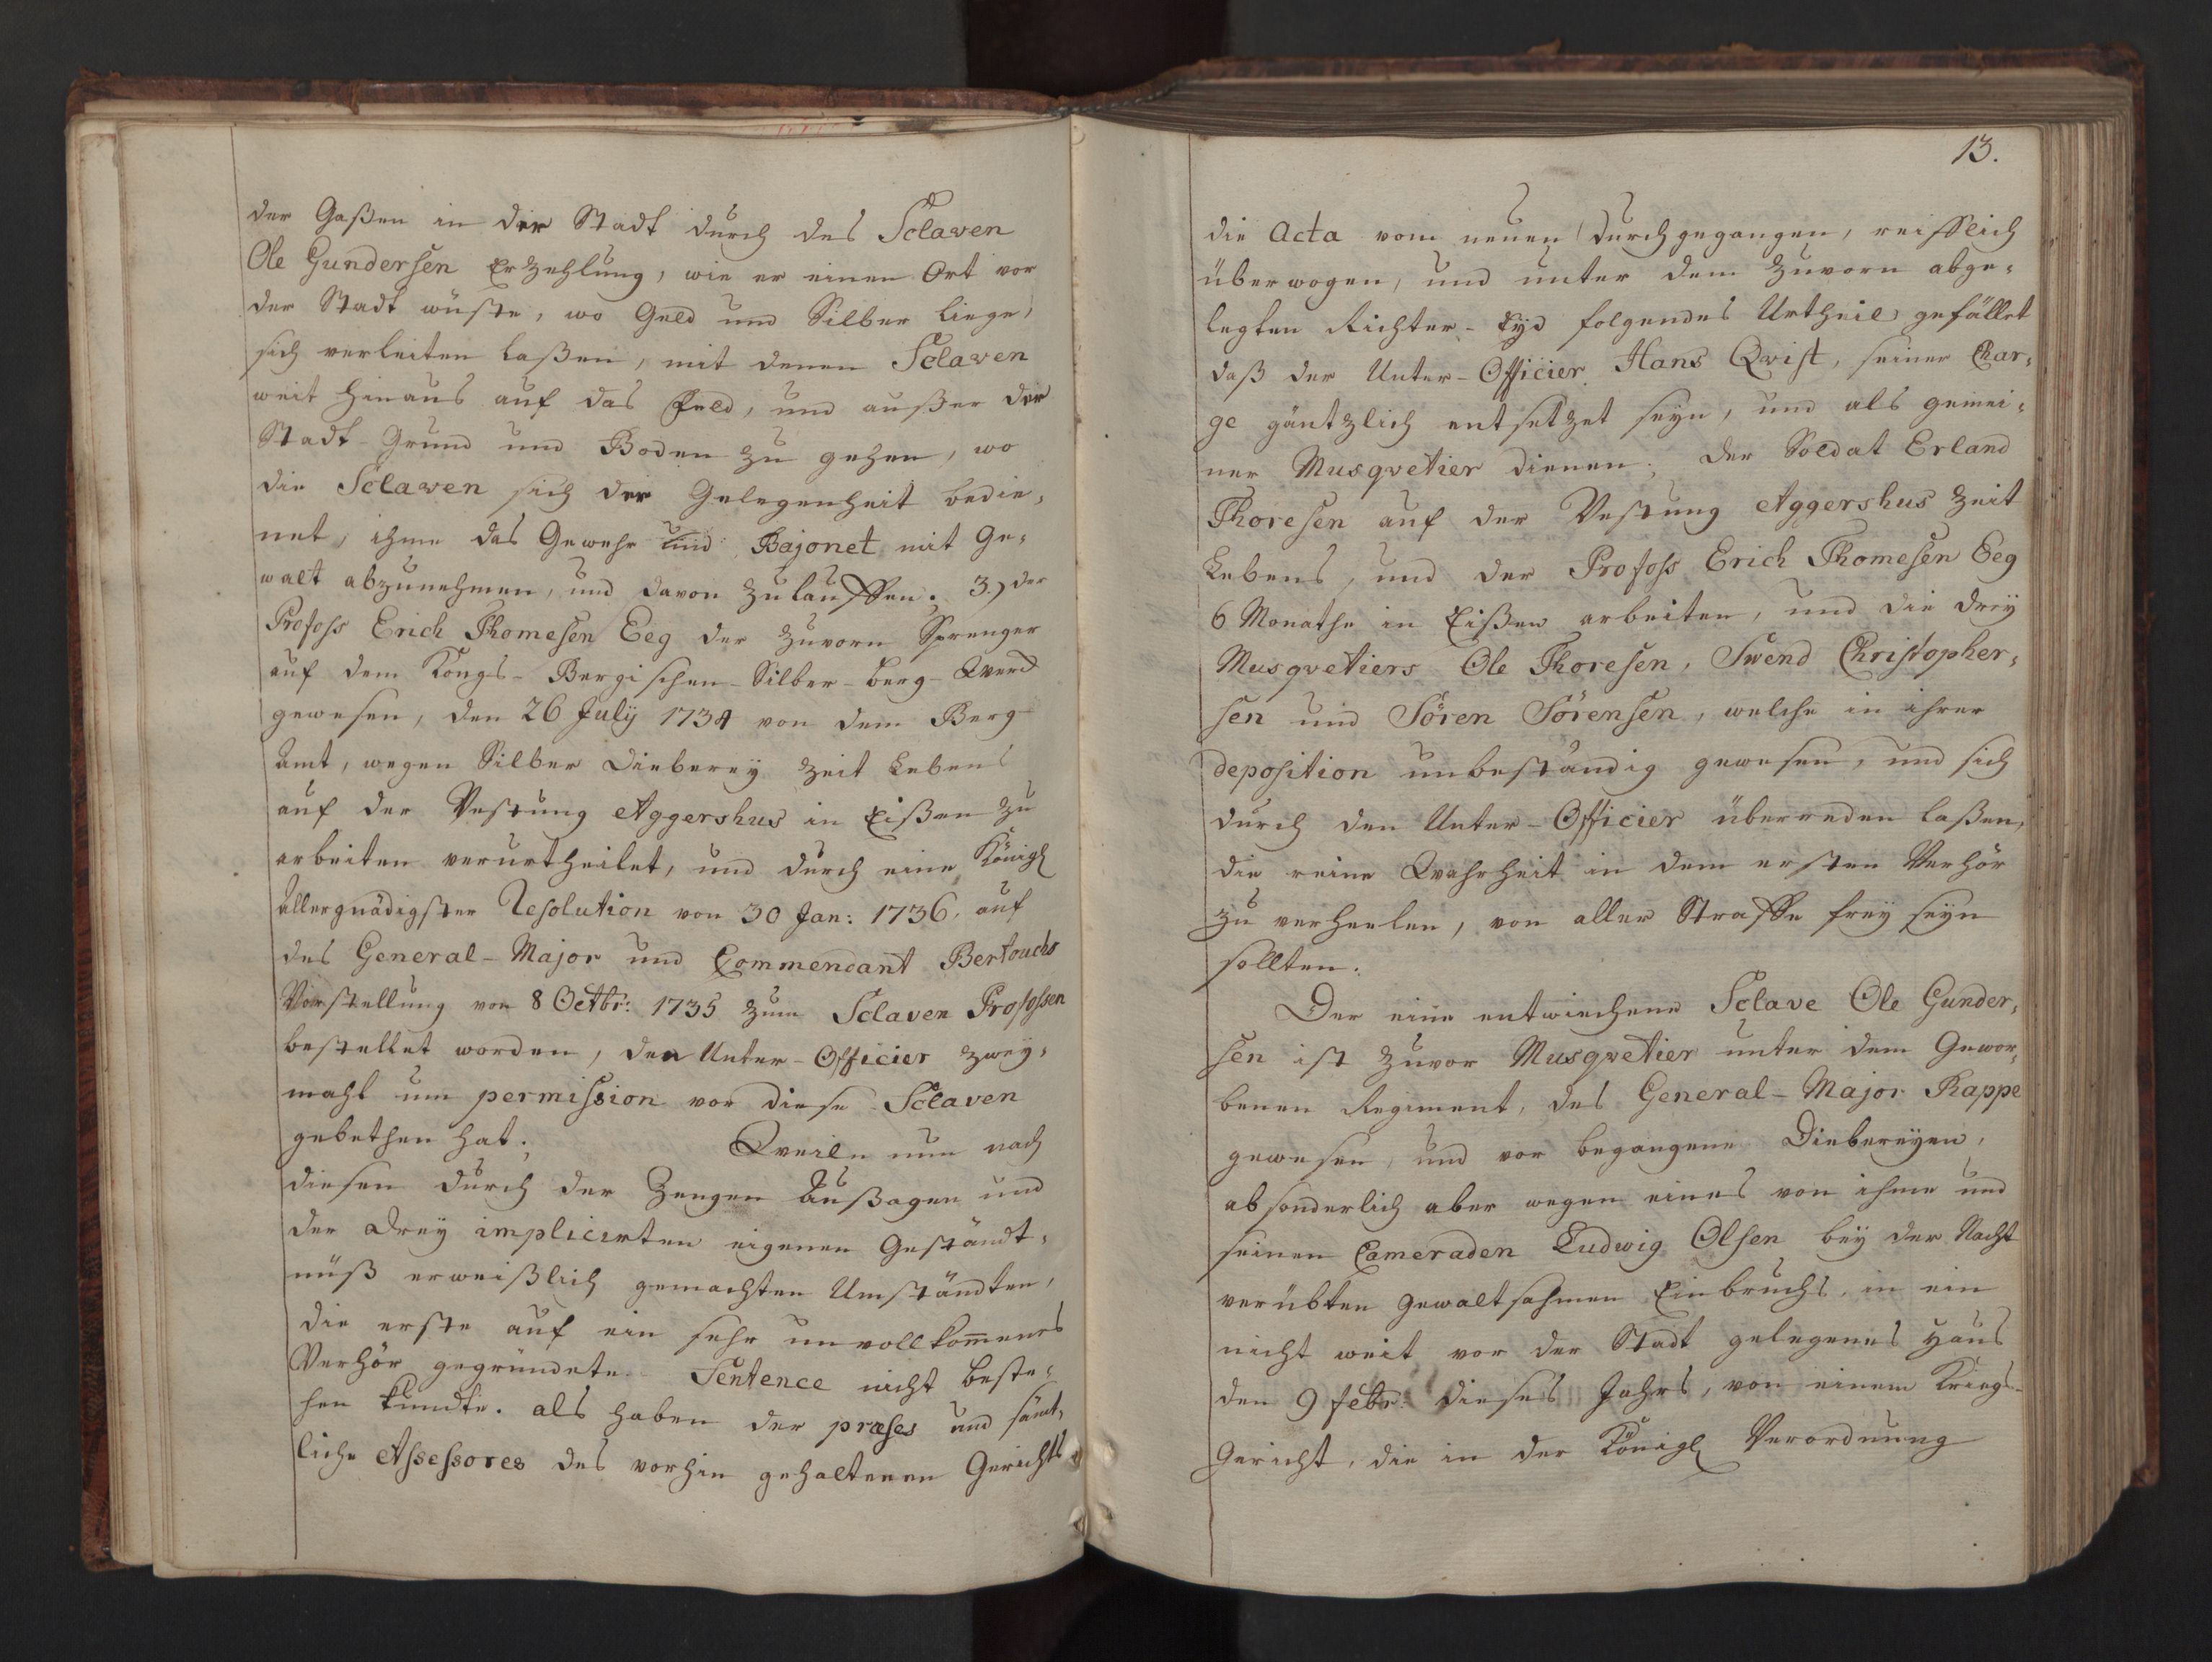 der Gaßen in der Stadt durch des Sclaven
Ole Gundersen Erzehlung, wie er einen Ort vor
der Stadt wüste, wo Geld und Silber liege,
sich verleiten laßen, mit denen Sclaven
weit hinaus auf das Feld, und außer der
Stadt-Grund und Boden zu gehen, wo
die Sclaven sich der Gelegenheit bedie-
net, ihme das Gewehr und Bajonet mit Ge-
walt abzunehmen, und davon zulauffen. 3.) der
Profoss Erich Thomesen Eeg der zuvorn Sprenger
auf dem Kongs-Bergischen-Silber-berg-Werck
gewesen, den 26 July 1734 von dem Berg
Amt, wegen Silber Dieberey Zeit Lebens
auf der Vestung Aggershus in Eißen zu
arbeiten verurtheilet, und durch eine Königl
Allergnädigster Resolution von 30 Jan: 1736, auf
des General-Major und Commendant Bertouchs
Vorstellung von 8 Octbr: 1735 zum Sclaven Profossen
bestellet worden, den Unter-Officier zwey-
mahl um permission vor diese Sclaven
gebethen hat. Weiln nun nach
diesen durch der Zeugen Außagen und
der drey implicirten eigenen Geständt-
nüß erweißlich gemachten Umständten,
die erste auf ein sehr unvollkom̄enes
Verhör gegründete Sentence nicht beste-
hen kundte. als haben der præses und sämt-
liche Assessores des vorhin gehaltenen Gerichts
13.
die Acta vom neuen durchgegangen, reifflich
überwogen, und unter dem zuvorn abge-
legten Richter-Eyd folgendes Urtheil gefället
daß der Unter-Officier Hans Qvist, seiner Char-
ge gäntzlich entsetzet seyn, und als gemei-
ner Musqvetier dienen; der Soldat Erland
Thoresen auf der Vestung Aggershus Zeit
Lebens, und der Profoss Erich Thomesen Eeg
6 Monathe in Eißen arbeiten, und die drey
Musqvetiers Ole Thoresen, Swend Christopher-
sen und Sören Sörensen, welche in ihrer
deposition unbeständig gewesen, und sich
durch den Unter-Officier überreden laßen,
die reine Wahrheit in dem ersten Verhör
zu verheelen, von aller Straffe frey seyn
sollten.
Der eine entwichene Sclave Ole Gunder-
sen ist zuvor Musqvetier unter dem Gewor-
benen Regiment, des General-Major Rappe
gewesen, und vor begangene Diebereyen,
absonderlich aber wegen eines von ihme und
seinen Cameraden Ludwig Olsen bey der Nacht
verübten gewaltsahmen Einbruchs, in ein
nicht weit vor der Stadt gelegenes Haus
den 9 febr: dieses Jahrs, von einem Kriegs-
Gericht, die in der Königl Verordnung